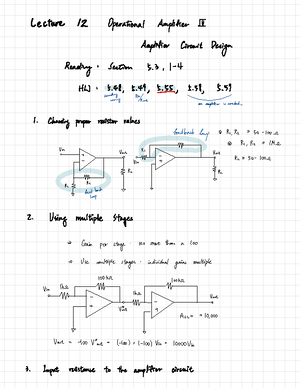 Lecture 12 Operational Amplifier IV
Amplifier Circuit Design
Reading : Section 5.3, 1-4
HW : 5.48, 5.49, 5.55, 5.58, 5.59
1. Choosing proper resistor values
feedback loop
Vin
Vout
RL
R1
feedback loop
Vin
Vout
RL
2. Using multiple stages
Gain per stage : no more than a 100
Use multiple stages : individual gains multiple
100kΩ
100kΩ
Vin
1kΩ
1kΩ
Vout
= 10,000
Vout = -100 = (-100) × (-100) Vin = 10000 Vin
3. Input resistance to the amplifier circuit